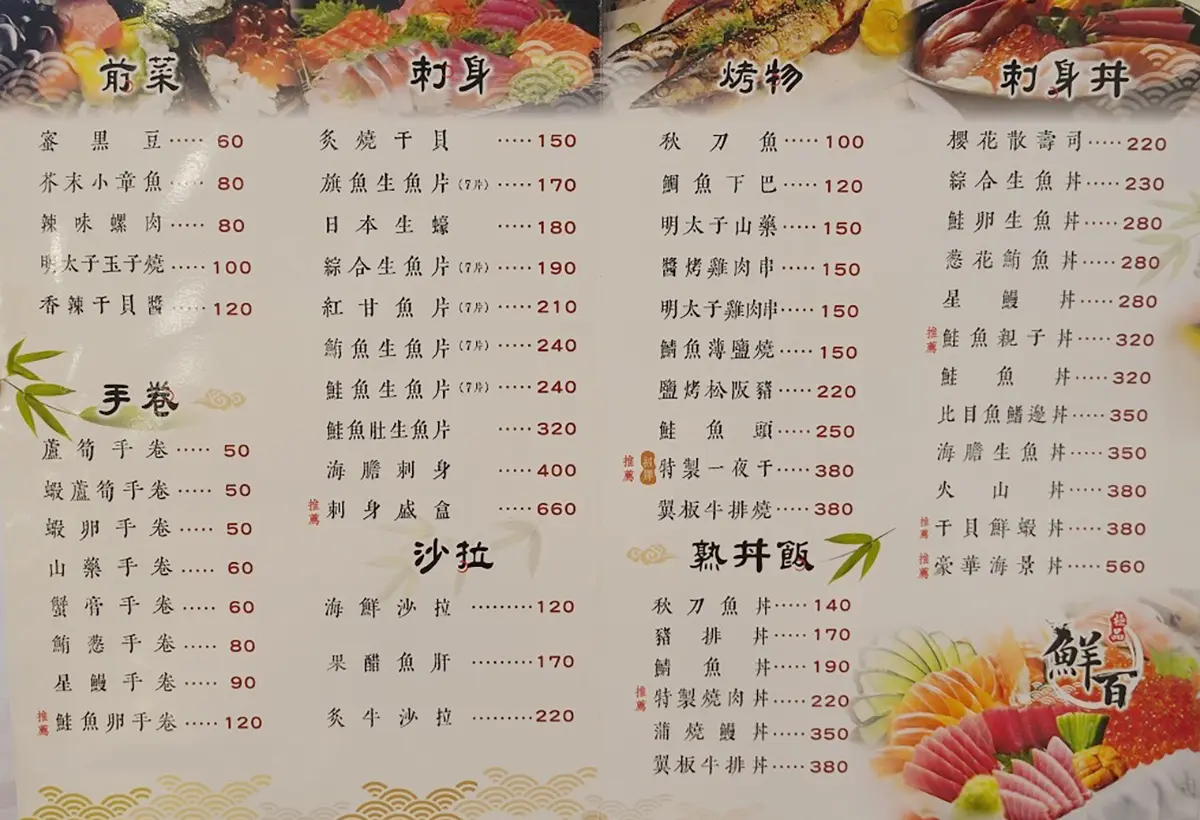 前菜
蜜黑豆‧‧‧‧‧60
芥末小章魚‧‧‧‧‧80
辣味螺肉‧‧‧‧‧80
明太子玉子燒‧‧‧‧‧100
香辣干貝醬‧‧‧‧‧120
手卷
蘆筍手卷‧‧‧‧‧50
蝦蘆筍手卷‧‧‧‧‧50
蝦卵手卷‧‧‧‧‧50
山藥手卷‧‧‧‧‧60
蟹膏手卷‧‧‧‧‧60
鮪蔥手卷‧‧‧‧‧80
星鰻手卷‧‧‧‧‧90
推薦 鮭魚卵手卷‧‧‧‧‧120
刺身
炙燒干貝‧‧‧‧‧150
旗魚生魚片(7片)‧‧‧‧‧170
日本生蠔‧‧‧‧‧180
綜合生魚片(7片)‧‧‧‧‧190
紅甘魚片(7片)‧‧‧‧‧210
鮪魚生魚片(7片)‧‧‧‧‧240
鮭魚生魚片(7片)‧‧‧‧‧240
鮭魚肚生魚片‧‧‧‧‧320
海膽刺身‧‧‧‧‧400
推薦 刺身盛盒‧‧‧‧‧660
沙拉
海鮮沙拉‧‧‧‧‧‧‧‧‧120
果醋魚肝‧‧‧‧‧‧‧‧‧170
炙牛沙拉‧‧‧‧‧‧‧‧‧220
烤物
秋刀魚‧‧‧‧‧100
鯛魚下巴‧‧‧‧‧120
明太子山藥‧‧‧‧‧150
醬烤雞肉串‧‧‧‧‧150
明太子雞肉串‧‧‧‧‧150
鯖魚薄鹽燒‧‧‧‧‧150
鹽烤松阪豬‧‧‧‧‧220
鮭魚頭‧‧‧‧‧250
推薦 特製一夜干‧‧‧‧‧380
翼板牛排燒‧‧‧‧‧380
熟丼飯
秋刀魚丼‧‧‧‧‧140
豬排丼‧‧‧‧‧170
鯖魚丼‧‧‧‧‧190
推薦 特製燒肉丼‧‧‧‧‧220
蒲燒鰻丼‧‧‧‧‧350
翼板牛排丼‧‧‧‧‧380
刺身丼
櫻花散壽司‧‧‧‧‧220
綜合生魚丼‧‧‧‧‧230
鮭卵生魚丼‧‧‧‧‧280
蔥花鮪魚丼‧‧‧‧‧280
星鰻丼‧‧‧‧‧280
推薦 鮭魚親子丼‧‧‧‧‧320
鮭魚丼‧‧‧‧‧320
比目魚鰭邊丼‧‧‧‧‧350
海膽生魚丼‧‧‧‧‧350
火山丼‧‧‧‧‧380
推薦 干貝鮮蝦丼‧‧‧‧‧380
推薦 豪華海景丼‧‧‧‧‧560
鮮百